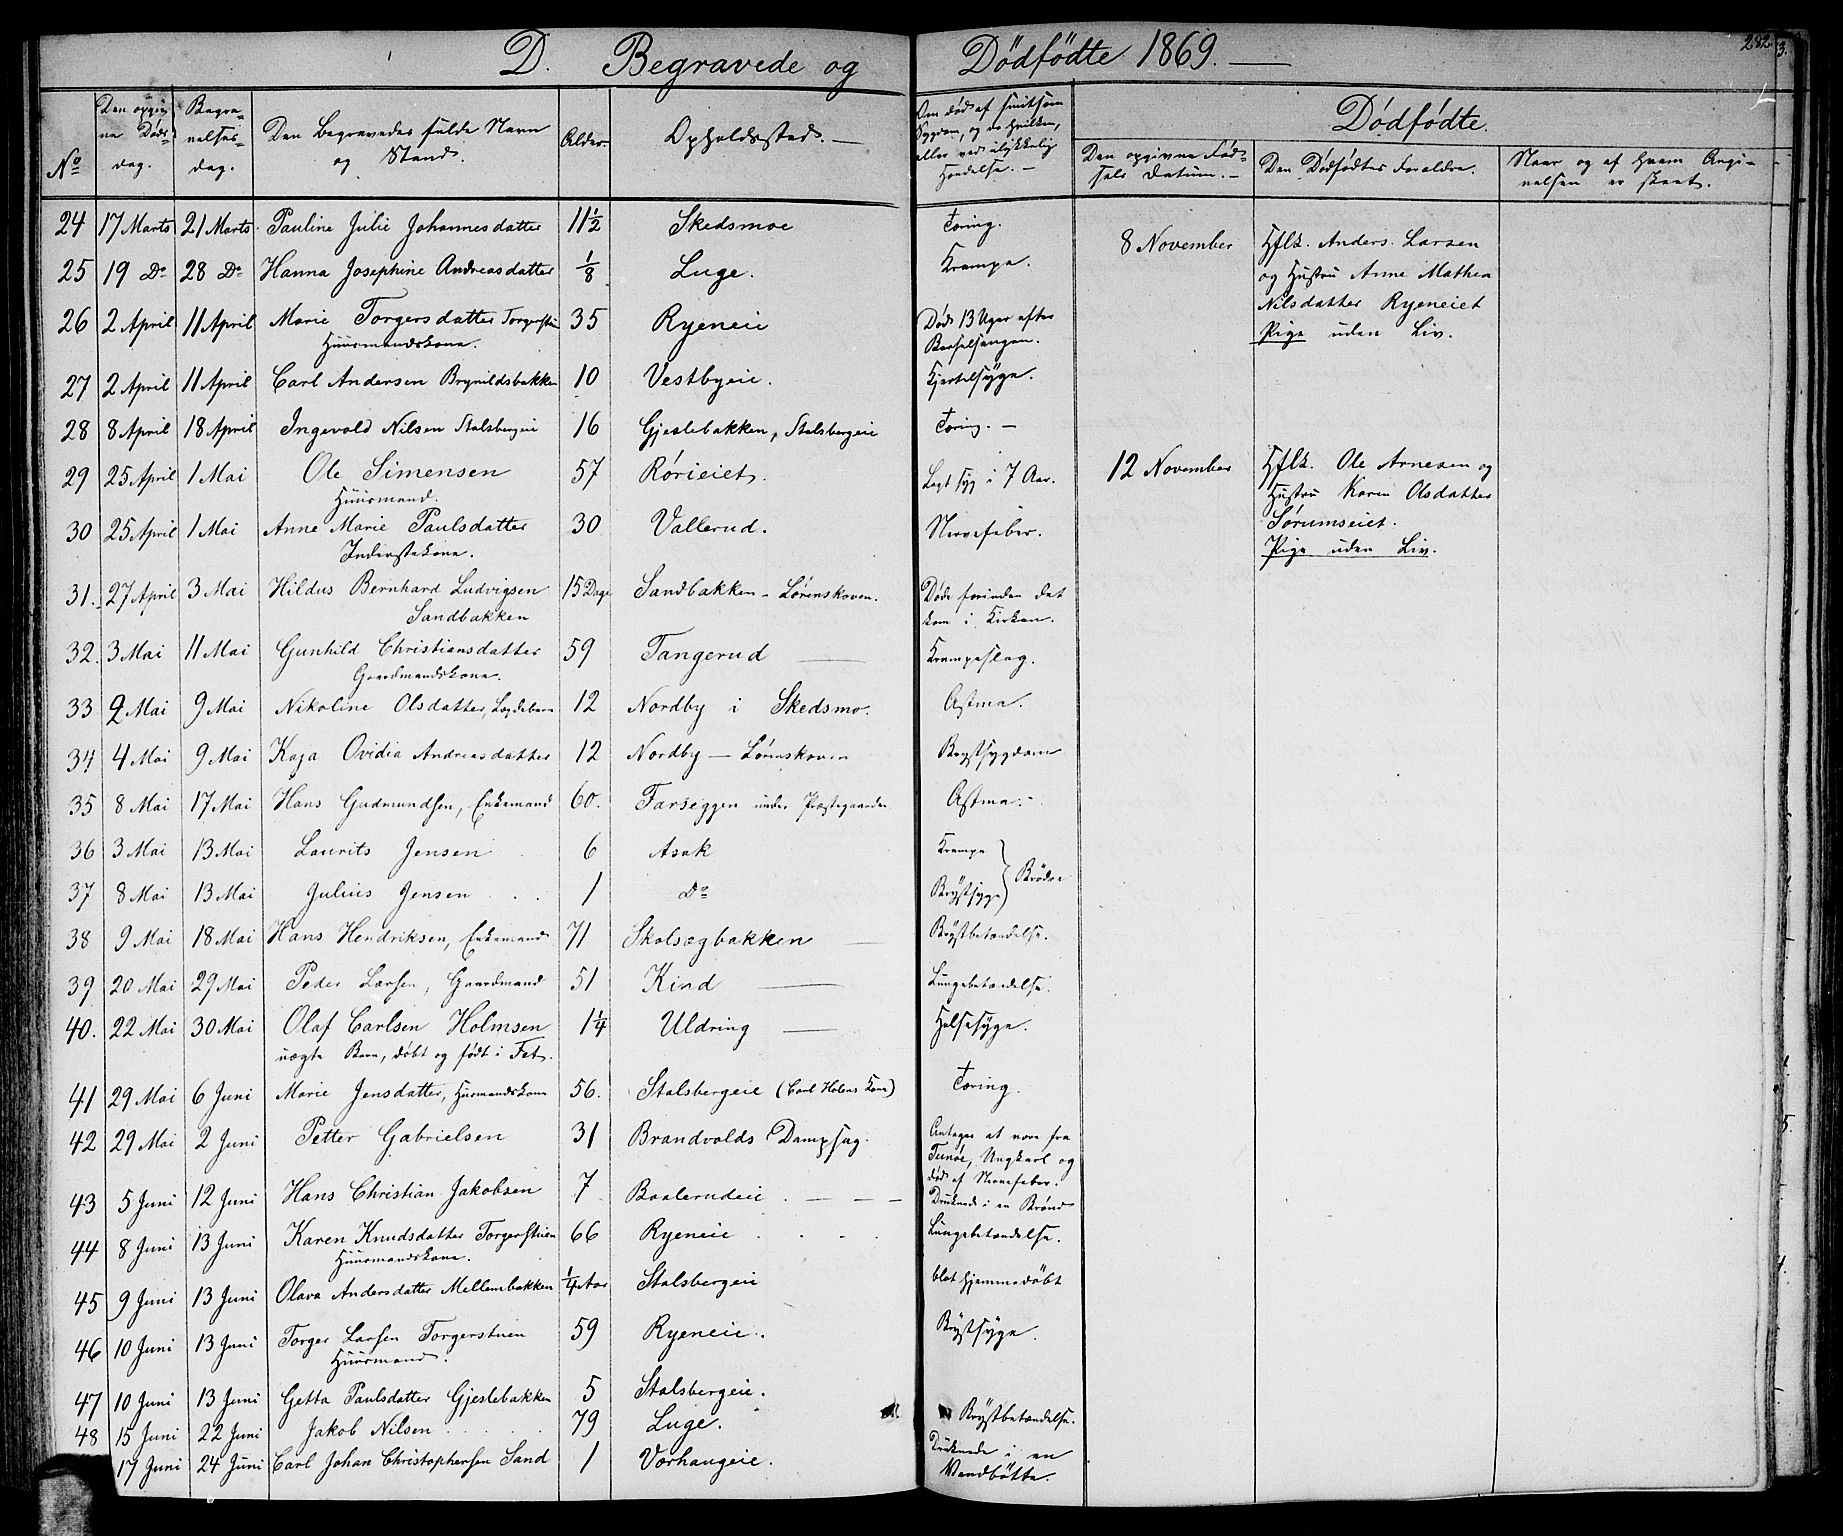 D. Begravede og Dödfödte 1869. 282.
No
Den opgivne Dødsdag.
Begravelsesdag.
Den Begravedes fulde Navn og Stand.
Alder.
Opholdssted.
Om død af smitsom Sygdom, og da hvilken, eller ved ulykkelig Hændelse.
Dødfødte.
Den opgivne Fødsels Datum.
Den Dødfødtes Forældre.
Naar og af hvem Angivelsen er skeet.
24 17 Marts 21 Marts Pauline Julie Johannesdatter 11 1/2 Skedsmoe Tæring.
25 19 Do 28 Do Hanna Josephine Andreasdatter 1/8 Luge. Krampe.
26 2 April 11 April Marie Torgersdatter Torgerstuen 35 Ryeneie Døde 13 Uger efter
Huusmandskone. Barselsengen.
27 2 April 11 April Carl Andersen Brynildsbakken 10 Vestbyeie. Kjertelsyge.
28 8 April 18 April Ingevold Nilsen Stalsbergeie 16 Gjeslebakken, Stalsbergeie Tæring.
29 25 April 1 Mai Ole Simensen 57 Rørieiet. Lagt syg i 7 Aar.
Huusmand.
30 25 April 1 Mai Anne Marie Paulsdatter 30 Vallerud. Nervefeber.
Inderstekone.
31. 27 April 3 Mai Hildus Bernhard Ludvigsen 15 Dage Sandbakken - Lørenskoven. Døde forinden det
Sandbakken kom i Kirken.
32. 3 Mai 11 Mai Gunhild Christiansdatter 59 Tangerud Krampeslag.
Gaardmandskone.
33 2 Mai 9 Mai Nikoline Olsdatter, Lægdebarn 12 Nordby i Skedsmo. Astma.
34 4 Mai 9 Mai Kaja Ovidia Andreasdatter 12 Nordby - Lørenskoven Brystsygdom
35 8 Mai 17 Mai Hans Gudmundsen, Enkemand 60. Farseggen under Præstegaarden Astma.
36 3 Mai 13 Mai Laurits Jensen 6 Asak Krampe
37 8 Mai 13 Mai Julius Jensen 1 Do Brystsyge } Brødre
38 9 Mai 18 Mai Hans Hendriksen, Enkemand 71 Skolsægbakken Brystbetændelse.
39 20 Mai 29 Mai Peder Larsen, Gaardmand 51 Kind Lungebetændelse.
40. 22 Mai 30 Mai Olaf Carlsen Holmsen 1 1/4 Uldring Halsesyge.
uægte Barn, døbt og født i Fet.
41 29 Mai 6 Juni Marie Jensdatter, Husmandskone 56. Stalsbergeie (Carl Holens Kone) Tæring.
42 29 Mai 2 Juni Petter Gabrielsen 31 Brandvolds Dampsag. Antages at være fra
Tunøe, Ungkarl og
død af Nervefeber.
43 5 Juni 12 Juni Hans Christian Jakobsen 7 Baalerudeie Druknede i en Brønd
44 8 Juni 13 Juni Karen Knudsdatter Torgerstuen 66 Ryeneie Lungebetændelse.
Huusmandskone.
45 9 Juni 13 Juni Olava Andersdatter Mellembakken 1/4 Aar Stalsbergeie blot hjemmedøbt
46 10 Juni 13 Juni Torger Larsen Torgerstuen 59 Ryeneie. Brystsyge.
Huusmand.
47 10 Juni 13 Juni Getta Paulsdatter Gjeslebakken 5 Stalsbergeie.
48 15 Juni 22 Juni Jakob Nilsen 79 Luge. Brystbetændelse.
17 Juni 24 Juni Carl Johan Christophersen Sand 1 Vorhaugeie. Druknede i en
Vandbøtte.
8 November Hflk. Anders Larsen
og Hustru Anne Mathea
Nilsdatter Ryeneiet
Pige uden Liv.
12 November Hflk. Ole Arnesen og
Hustru Karen Olsdatter
Sørumseiet.
Pige uden Liv.